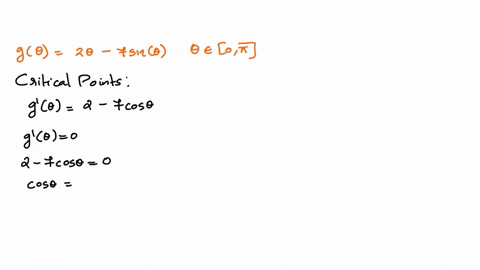 g(θ) = 2θ - 7sin(θ) θ ∈ [0, π]
Critical Points:
g'(θ) = 2 - 7cosθ
g'(θ) = 0
2 - 7cosθ = 0
cosθ =